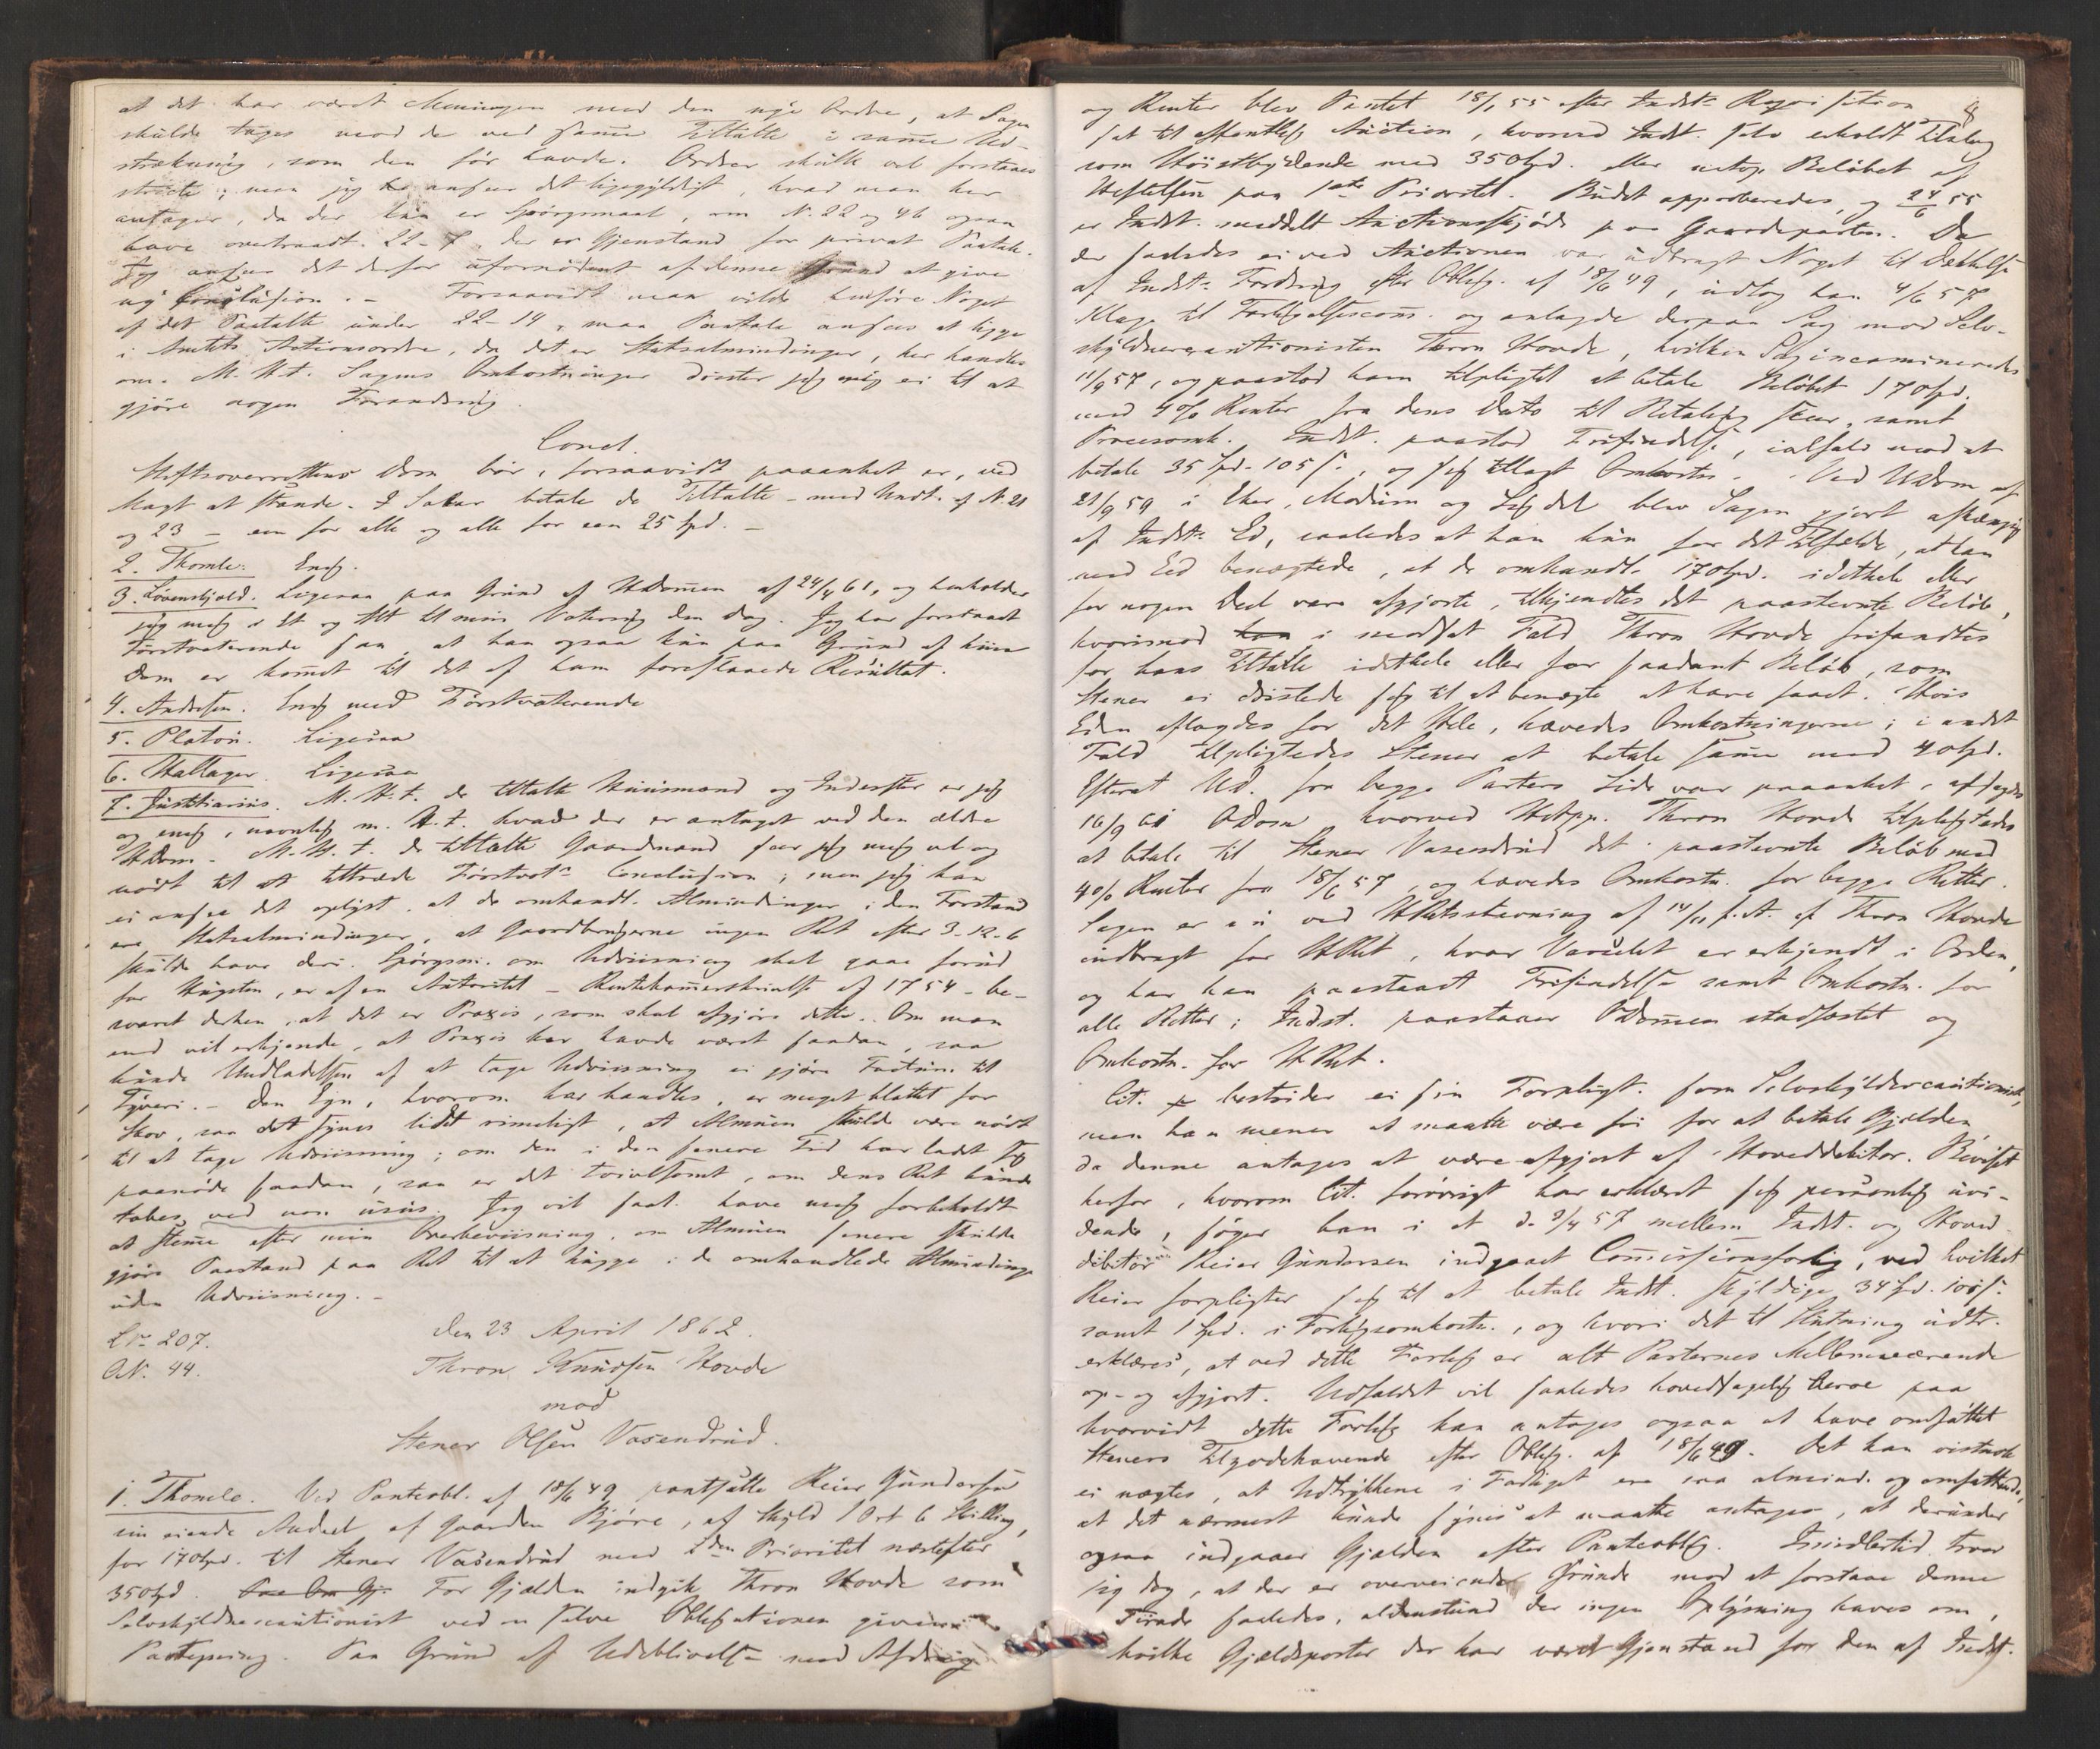 at det har været Meningen med den nye Ordre, at Sagen
skulde tages mod de ved samme Tiltalte i samme Ud-
strækning, som den før havde. Ordren skulle vel forstaaes
stricte; men jeg anseer det ligegyldigt, hvad man her
antager, da der kun er Spörgsmaal, om N. 22 og 46 ogsaa
have overtraadt 22-7, der er Gjenstand for privat Paatale.
Jeg anseer det derfor ufornödent af denne Grund at give
ny Conclusion. - Forsaavidt man vilde henføre Noget
af det Paatalte under 22-14, maa Paatale ansees at ligge
i Amtets Actionsordre, da det er Statsalmindinger, her handles
om. M. H. t. Sagens Omkostninger drister jeg mig ei til at
gjöre nogen Forandring.
Concl.
Stiftsoverrettens Dom bör, forsaavidt paaanket er, ved
Magt at stande. I Salær betale de Tiltalte - med Undt. af N. 21
og 23 - een for alle og alle for een 25 Spd. -
2. Thomle. Enig.
3. Lövenskjold. Ligesaa paa Grund af HDommen af 24/4 61, og henholder
jeg mig i Et og Alt til min Votering den Dag. Jeg har forstaaet
Förstvoterende saa, at han ogsaa kun paa Grund af hiin
Dom er kommet til det af ham foreslaaede Resultat.
4. Andresen. Enig med Förstvoterende
5. Platou. Ligesaa
6. Hallager. Ligesaa
7. Justitiarius. M. H. t. de tiltalte Huusmænd og Inderster er jeg
og enig, navnlig m. H. t. hvad der er antaget ved den ældre
HDom. M. H. t. de tiltalte Gaardmænd seer jeg mig vel og
nödt til at tiltræde Förstvots Conclusion; men jeg kan
ei ansee det oplyst, at de omhandl. Almindinger i den Forstand
ere Statsalmindinger, at Gaardbrugerne ingen Ret efter 3-12-6
skulde have deri. Spörgsm. om Udviisning skal gaae forud
for Hugsten, er af en Autoritet - Rentekammerskrivelse af 1754 - be-
svaret derhen, at det er Praxis, som skal afgjöre dette. Om man
end vil erkjende, at Praxis her havde været saadan, saa
kunde Undladelsen af at tage Udviisning ei gjöre Factum til
Tyveri. - Den Egn, hvorom her handles, er meget blottet for
Skov, saa det synes lidet rimeligt, at Almuen skulde være nödt
til at tage Udviisning; om den i den senere Tid har ladet sig
paanöde saadan, saa er det tvivlsomt, om dens Ret kunde
tabes ved non usus. Jeg vil saal. have mig forbeholdt
at stemme efter min Overbeviisning, om Almuen senere skulde
gjöre Paastand paa Ret til at hugge i de omhandlede Almindinger
uden Udviisning. -
Den 23 April 1862.
L No 207.
A N. 44.
Thron Knudsen Hovde
mod
Stener Olsen Vasendrud.
1. Thomle. Ved Panteobl. af 18/6 49 pantsatte Reier Gundersen
sin eiende Andeel af Gaarden Björe, af Skyld 1 Ort 6 Skilling,
for 170 Spd. til Stener Vasendrud med 2den Prioritet næstefter
350 Spd. For Gjælden indgik Thron Hovde som
Selvskyldnercautionist ved en selve Obligationen given
Paategning. Paa Grund af Udeblivelse med Afdrag
8
og Renter blev Pantet 18/1 55 efter Indsts Reqvisition
sat til offentlig Auction, hvorved Indst. selv erholdt Tilslag
som Höistbydende med 350 Spd. eller netop Belöbet af
Heftelsen paa 1ste Prioritet. Budet approberedes, og 24/6 55
er Indst. meddelt Auctionsskjöde paa Gaardeparten. Da
der saaledes ei ved Auctionen var udbragt Noget til Dækkelse
af Indsts Fordring efter Oblig. af 18/6 49, udtog han 4/6 57
Klage til Forligelsescomm. og anlagde derpaa Sag mod Selv-
skyldnercautionisten Thron Hovde, hvilken Sag incamineredes
11/9 57, og paastod ham tilpligtet at betale Belöbet 170 Spd.
med 4 % Renter fra dens Dato til Betaling skeer, samt
Procesomk. Indst. paastod Frifindelse, ialfald mod at
betale 35 Spd. 105 s., og sig tillagt Omkostn. Ved UDom af
21/9 59 i Eker, Modum og Sigdal blev Sagen gjort afhængig
af Indsts Ed, saaledes at han kun for det Tilfælde, at han
med Eed benægtede, at de omhandl. 170 Spd. i det Hele eller
for nogen Deel vare afgjorte, tilkjendtes det paastevnte Belöb,
hvorimod i modsat Fald Thron Hovde frifandtes
for hans Tiltale i det Hele eller for saadant Belöb, som
Stener ei dristede sig til at benægte at have faaet. Hvis
Eden aflagdes for det Hele, hævedes Omkostningerne; i andet
Fald tilpligtedes Stener at betale samme med 40 Spd.
Efterat UD. fra begge Parters Side var paaanket, afsagdes
16/9 61 ODom hvorved Hctpp. Thron Hovde tilpligtedes
at betale til Stener Vasendrud det paastevnte Belöb med
4 % Renter fra 18/6 57, og hævedes Omkostn. for begge Retter.
Sagen er nu ved HRetsstevning af 14/11 f. A. af Thron Hovde
indbragt for HRet, hvor Varselet er erkjendt i Orden,
og har han paastaaet Frifindelse samt Omkostn. for
alle Retter; Indst. paastaaer ODommen stadfæstet og
Omkostn. for HRet.
Cit. bestrider ei sin Forpligt. som Selvskyldnercautionist,
men han mener at maatte være fri for at betale Gjælden,
da denne antages at være afgjort af Hoveddebitor. Beviset
herfor, hvorom Cit. forövrigt har erklæret sig personlig uvi-
dende, söger han i et d. 2/4 57 mellem Indst. og Hoved-
debitor Reier Gundersen indgaaet Commissionsforlig, ved hvilket
Reier forpligter sig til at betale Indst. skyldige 34 Spd. 100 s.
samt 1 Spd. i Forligsomkostn., og hvori det til Slutning udtr.
erklæres, at ved dette Forlig er alt Parternes Mellemværende
op- og afgjort. Udfaldet vil saaledes hovedsagelig beroe paa
hvorvidt dette Forlig kan antages ogsaa at have omfattet
Steners Tilgodehavende efter Oblig. af 18/6 49. Det kan vistnok
ei nægtes, at Udtrykkene i Forliget ere saa almind. og omfattende,
at det nærmest kunde synes at maatte antages, at derunder
ogsaa indgaaer Gjælden efter Panteoblig. Imidlertid troer
jeg dog, at der er overveiende Grunde mod at forstaae denne
Tirade saaledes, aldenstund der ingen Oplysning haves om,
hvilke Gjældsposter der har været Gjenstand for den af Indst.